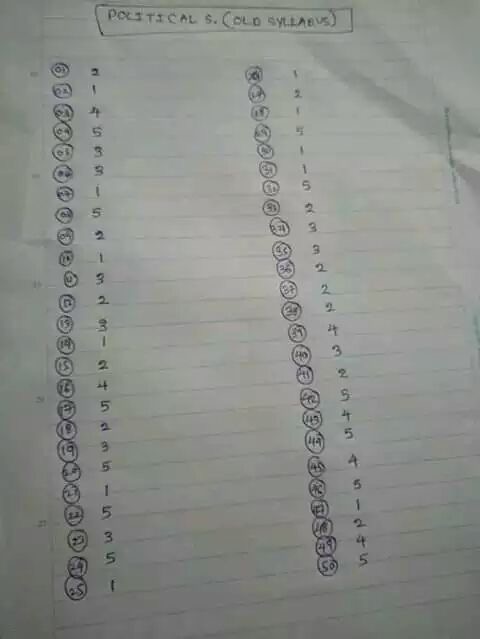 POLITICAL S. (OLD SYLLABUS)
01 2
02 1
03 4
04 5
05 3
06 3
07 1
08 5
09 2
10 1
11 3
12 2
13 3
14 1
15 2
16 4
17 5
18 2
19 3
20 5
21 1
22 5
23 3
24 5
25 1
26 1
27 2
28 1
29 5
30 1
31 1
32 5
33 2
34 3
35 3
36 2
37 2
38 2
39 4
40 3
41 2
42 5
43 4
44 5
45 4
46 5
47 1
48 2
49 4
50 5